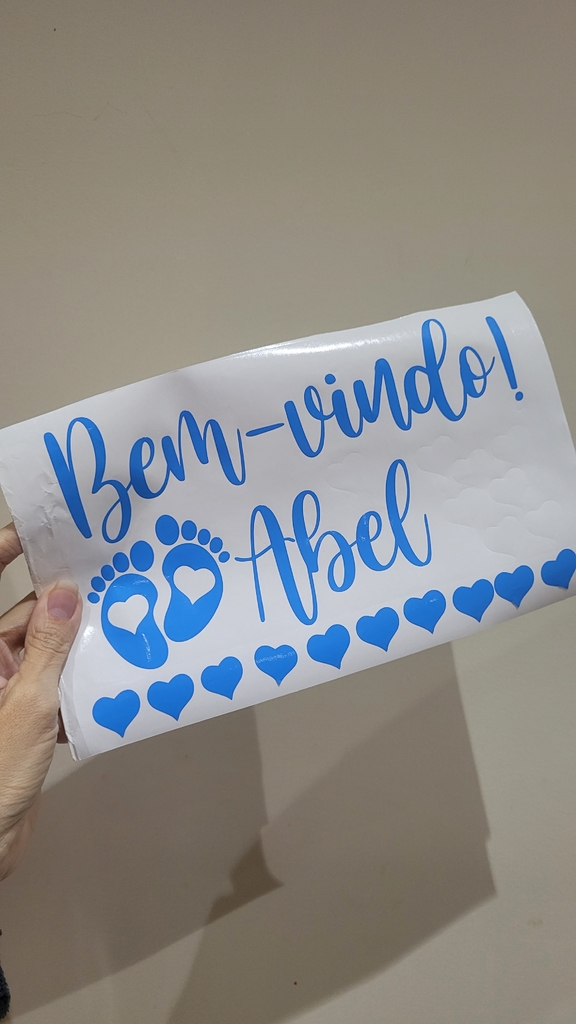 Bem-vindo!
Abel